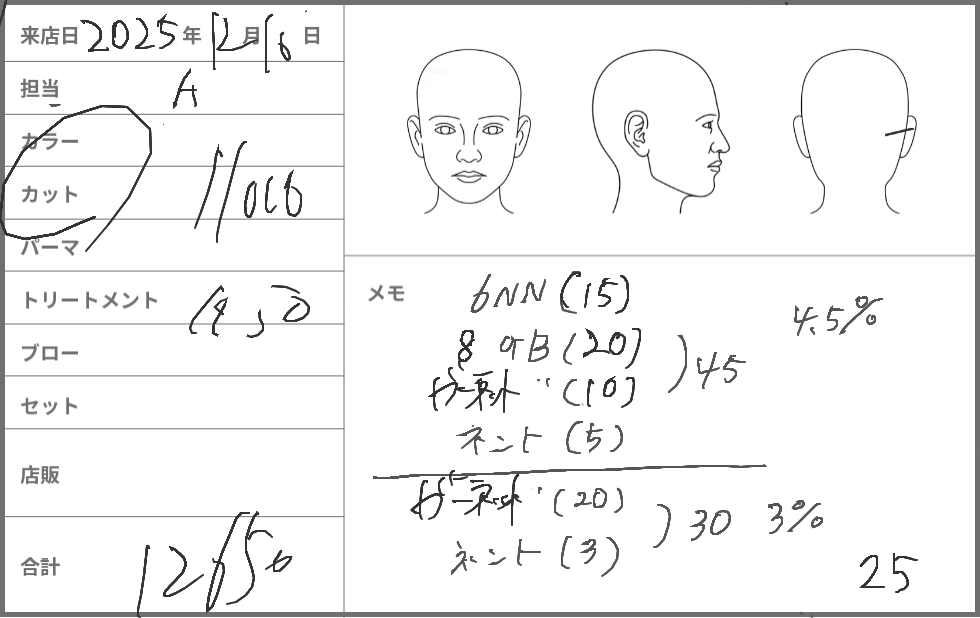 来店日 2025年 12月 16日
担当 A
カラー
カット 11000
パーマ
トリートメント 1650
ブロー
セット
店販
合計 12650
メモ
6NN (15)
8 (20)
ガーネット (10)
) 45
4.5%
(5)
ガーネット (20)
(3)
) 30 3%
25